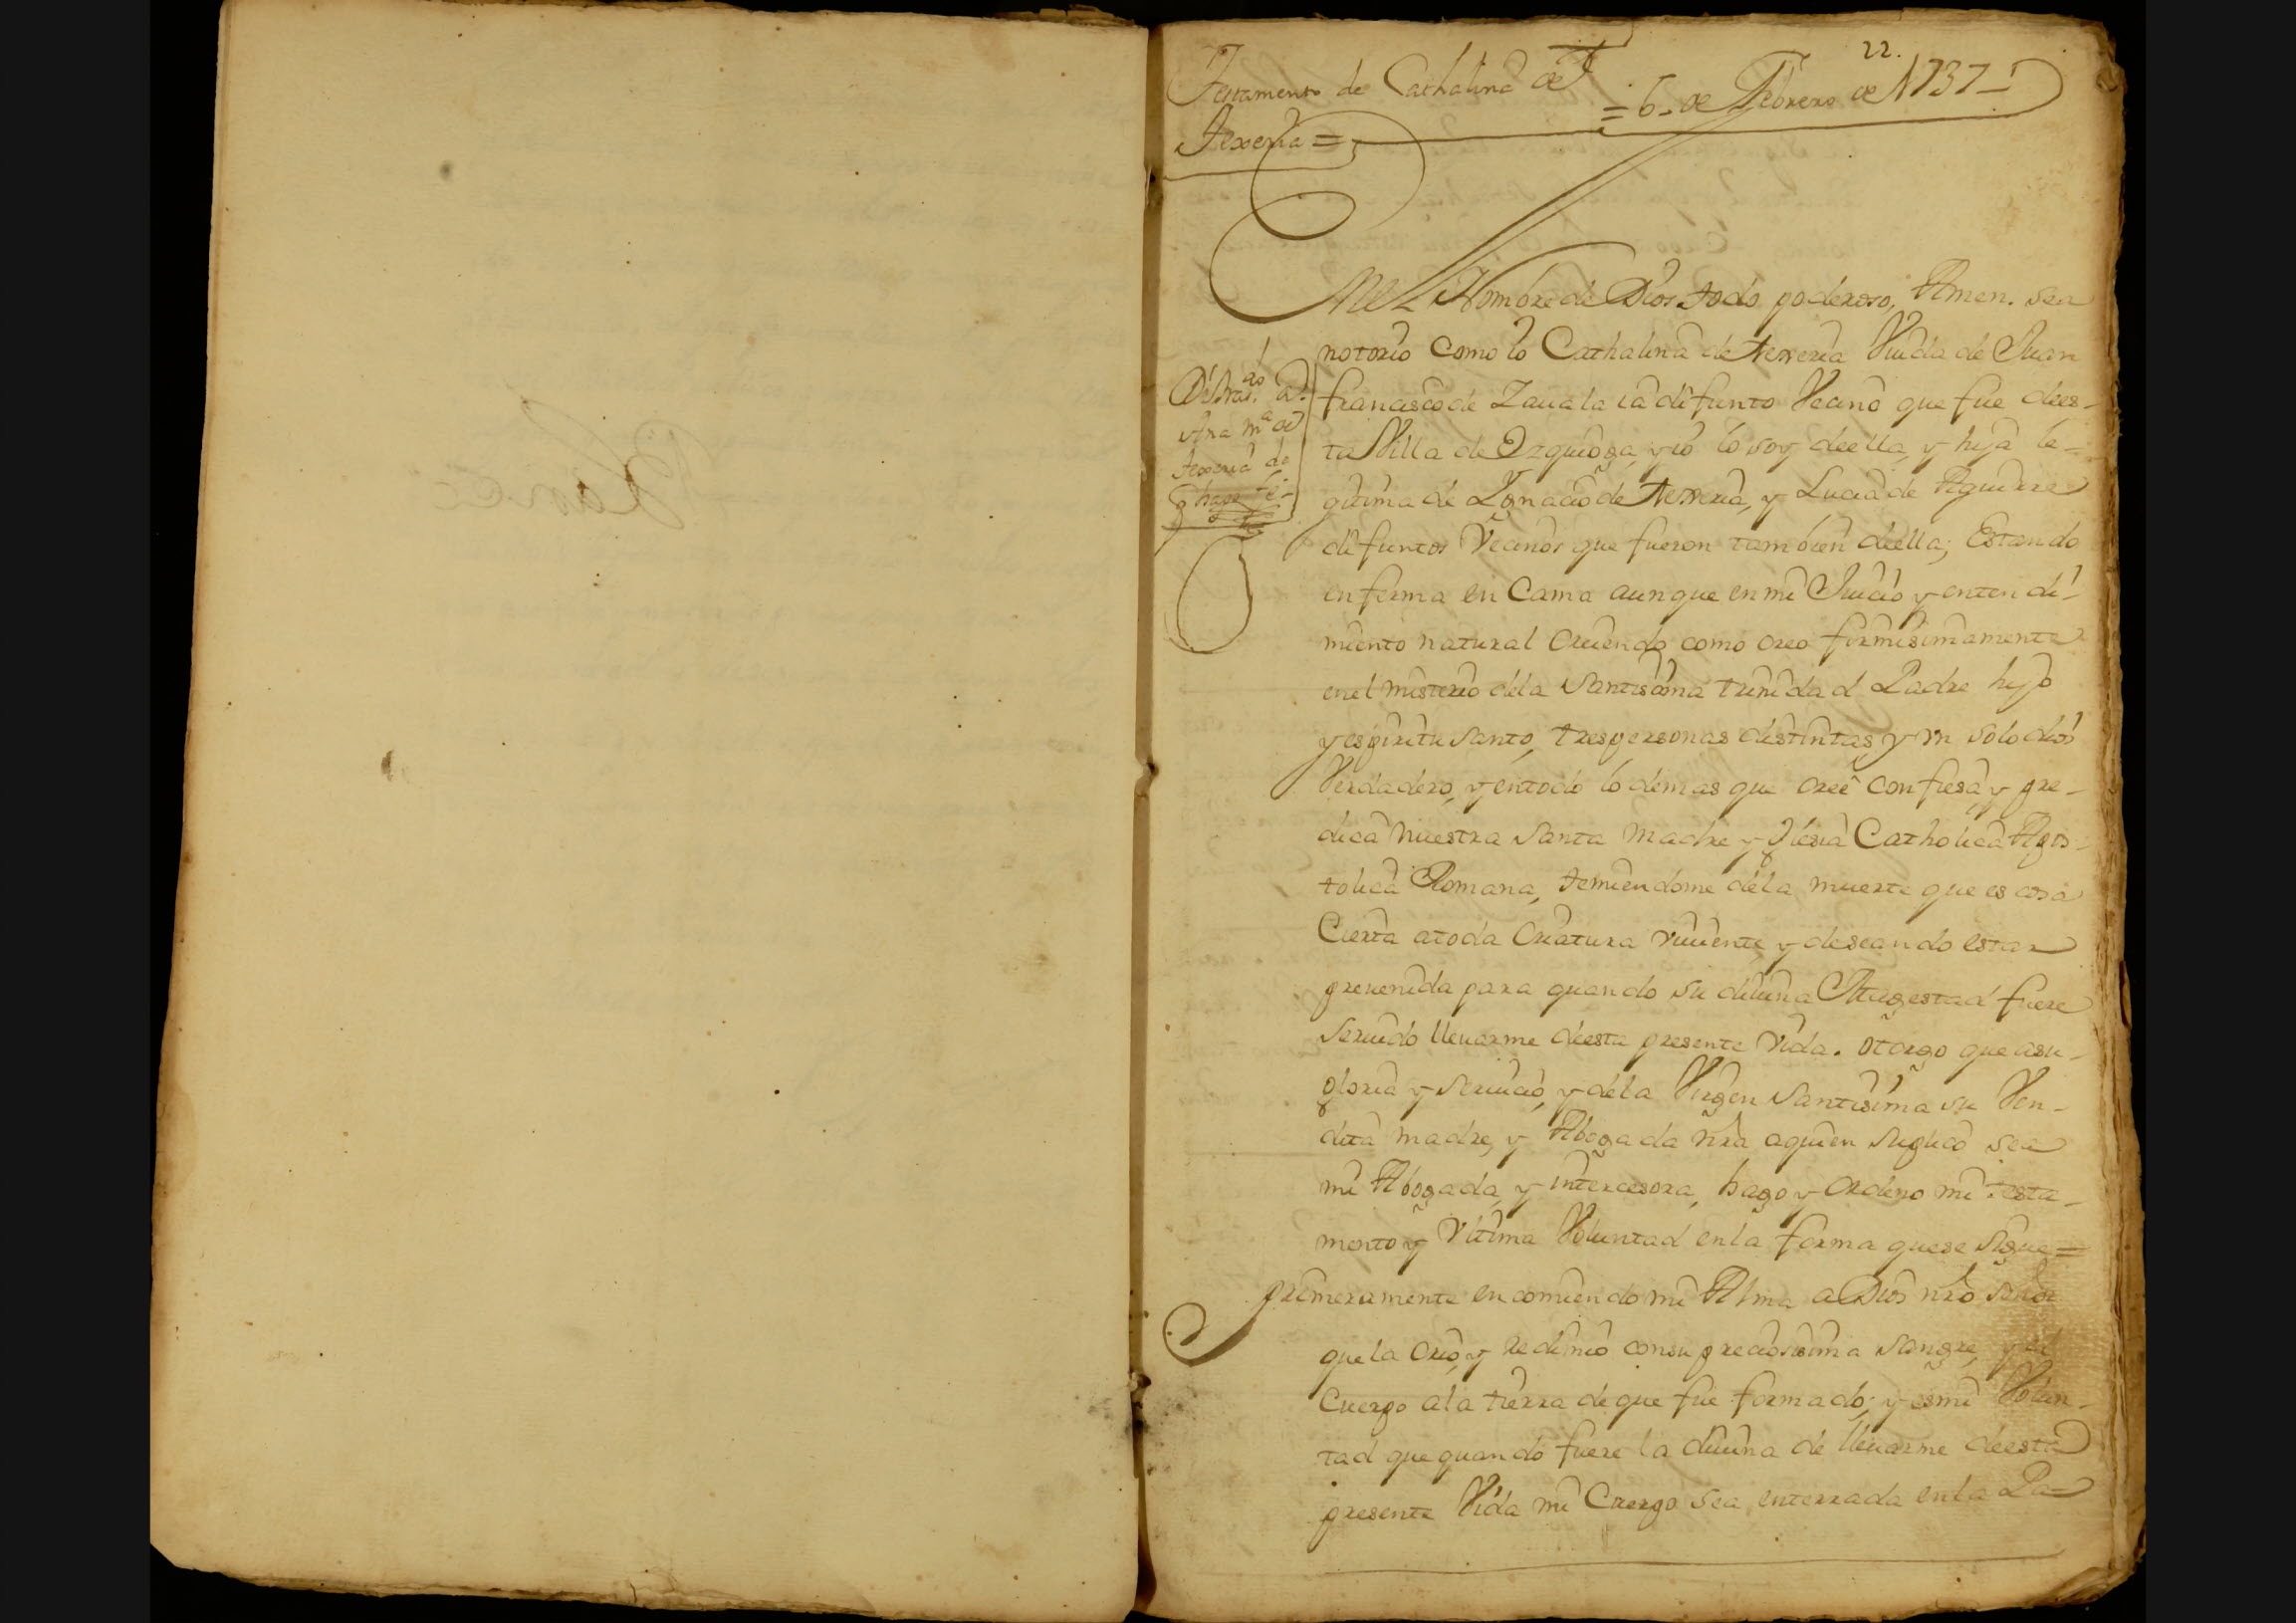 22.
Testamento de Cathalina de
texeria =
= 6. de Febrero de 1737 =
En el Nombre de Dios todo poderoso, Amen. sea
notorio como io Cathalina de texeria Viuda de Juan
francisco de Zauala ia difunto Vecino que fue de es-
ta Villa de Ezquioga, y io lo soy de ella, y hija le-
gitima de Ignacio de texeria, y Lucia de Aguirre
difuntos Vecinos que fueron tambien de ella; Estando
enferma en Cama aunque en mi Juicio y entendi-
miento natural Creiendo como creo firmisimamente
en el misterio de la Santissima trinidad Padre hijo
y espiritu santo, tres personas distintas y vn solo dios
Verdadero, y en todo lo demas que cree confiesa, y pre-
dica nuestra santa madre Yglesia Catholica Apos-
tolica Romana, temiendome de la muerte que es cosa
Cierta a toda Criatura viuiente y deseando estar
preuenida para quando su diuina Magestad fuere
seruido lleuarme de esta presente vida. otorgo que a su
gloria y seruicio, y de la Virgen Santisima su Ven-
dita madre, y Abogada nra a quien suplico sea
mi Abogada, y intercesora, hago y Ordeno mi testa-
mento y Vltima Voluntad en la forma que se sigue =
primeramente encomiendo mi Alma a Dios nro señor
que la Crio, y redimio con su preciosisima sangre, y el
Cuerpo a la tierra de que fue formado; y es mi Volun-
tad que quando fuere la diuina de lleuarme de esta
presente Vida mi Cuerpo sea enterrada en la Pa-
texeria de
q hago fe